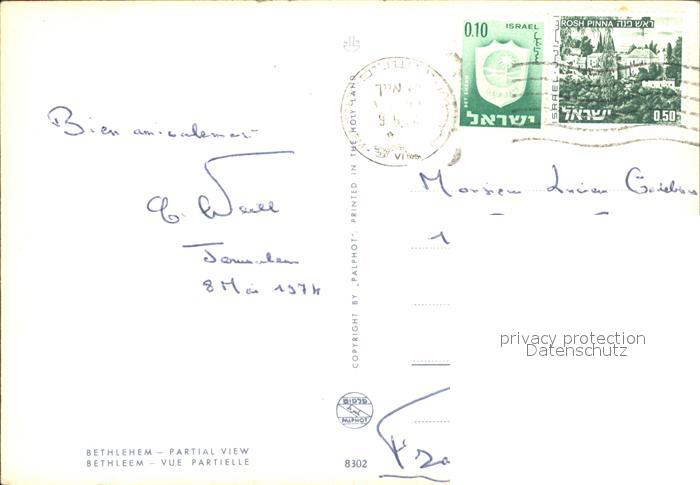 0.10 ISRAEL
ישראל
ROSH PINNA ראש פנה
ISRAEL
ישראל 0.50
VI
Bien amicalement
Weill
Jerusalem
8 Mai 1974
Monsieur Lucien
privacy protection
Datenschutz
COPYRIGHT BY „PALPHOT", PRINTED IN THE HOLY LAND
פלפוט
PALPHOT
BETHLEHEM – PARTIAL VIEW
BETHLEEM – VUE PARTIELLE
8302
Fra